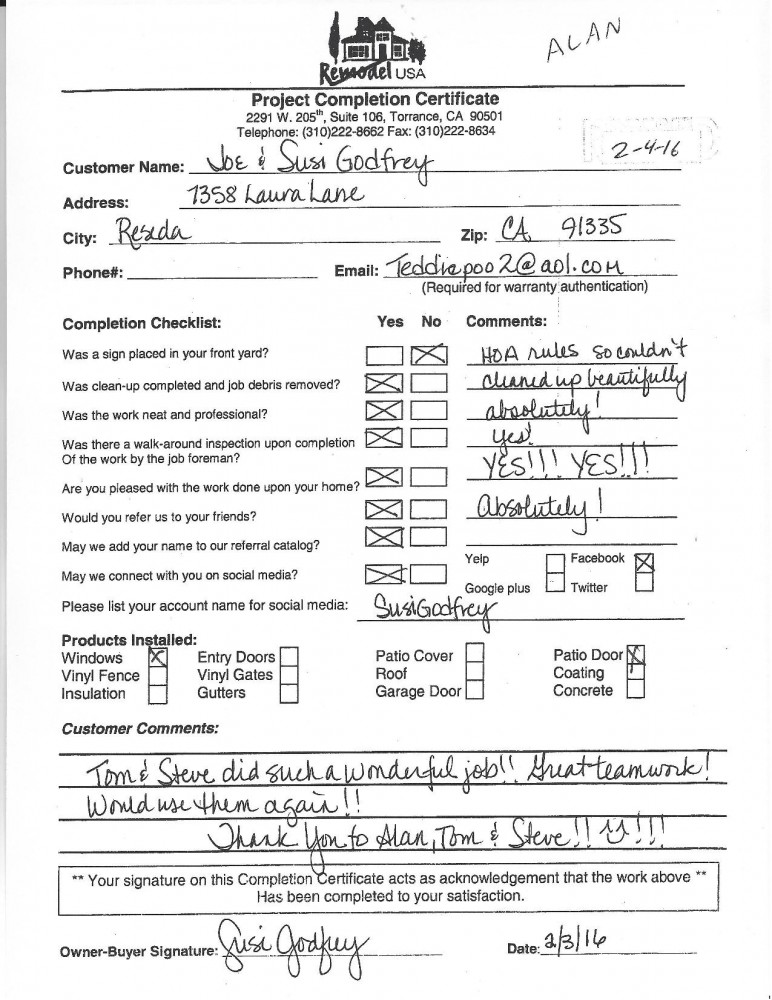 ALAN
Remodel USA
Project Completion Certificate
2291 W. 205th, Suite 106, Torrance, CA 90501
Telephone: (310)222-8662 Fax: (310)222-8634
2-4-16
Customer Name: Joe & Susi Godfrey
Address: 7358 Laura Lane
City: Reseda Zip: CA 91335
Phone#: Email: Teddiepoo2@aol.com
(Required for warranty authentication)
Completion Checklist: Yes No Comments:
Was a sign placed in your front yard? HOA rules so couldn't
Was clean-up completed and job debris removed? cleaned up beautifully
Was the work neat and professional? absolutely!
Was there a walk-around inspection upon completion yes!
Of the work by the job foreman?
Are you pleased with the work done upon your home? YES!!! YES!!!
Would you refer us to your friends? Absolutely!
May we add your name to our referral catalog?
Yelp Facebook
May we connect with you on social media?
Google plus Twitter
Please list your account name for social media: SusiGodfrey
Products Installed:
Windows Entry Doors Patio Cover Patio Door
Vinyl Fence Vinyl Gates Roof Coating
Insulation Gutters Garage Door Concrete
Customer Comments:
Tom & Steve did such a wonderful job!! Great teamwork!
Would use them again!!
Thank You to Alan, Tom & Steve!! !!!
** Your signature on this Completion Certificate acts as acknowledgement that the work above **
Has been completed to your satisfaction.
Owner-Buyer Signature: Susi Godfrey Date: 2/3/16